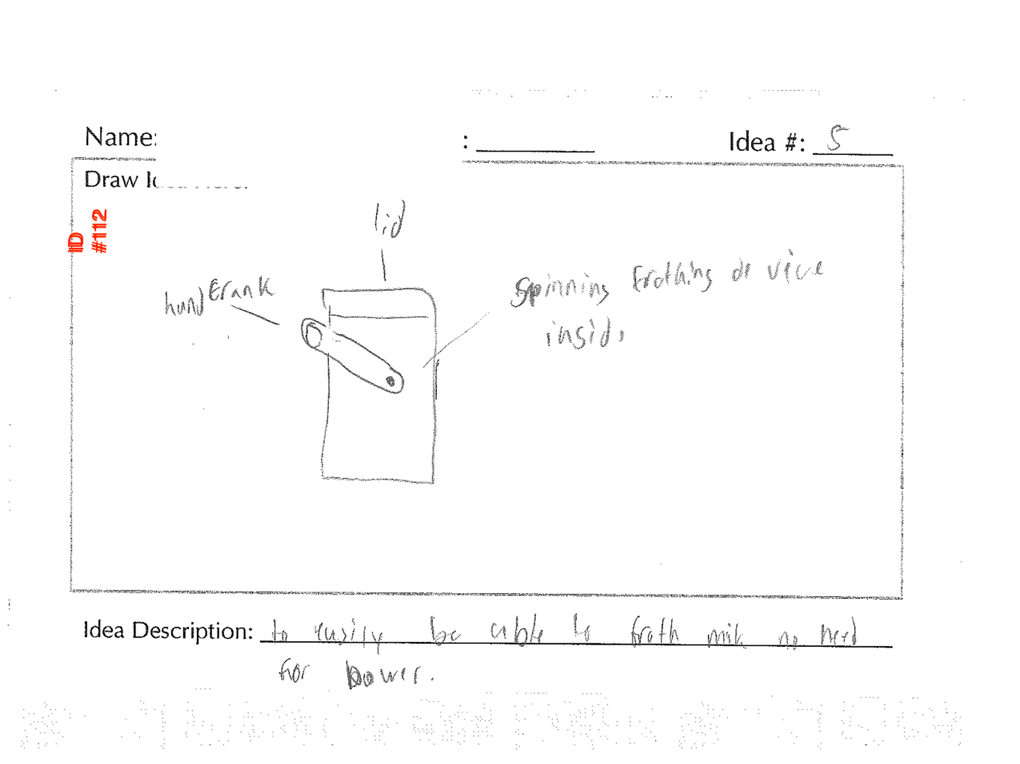 Name: : Idea #: 5
Draw
ID
#112
lid
hand crank
Spinning frothing device
inside
Idea Description: to easily be able to froth milk no need
for power.